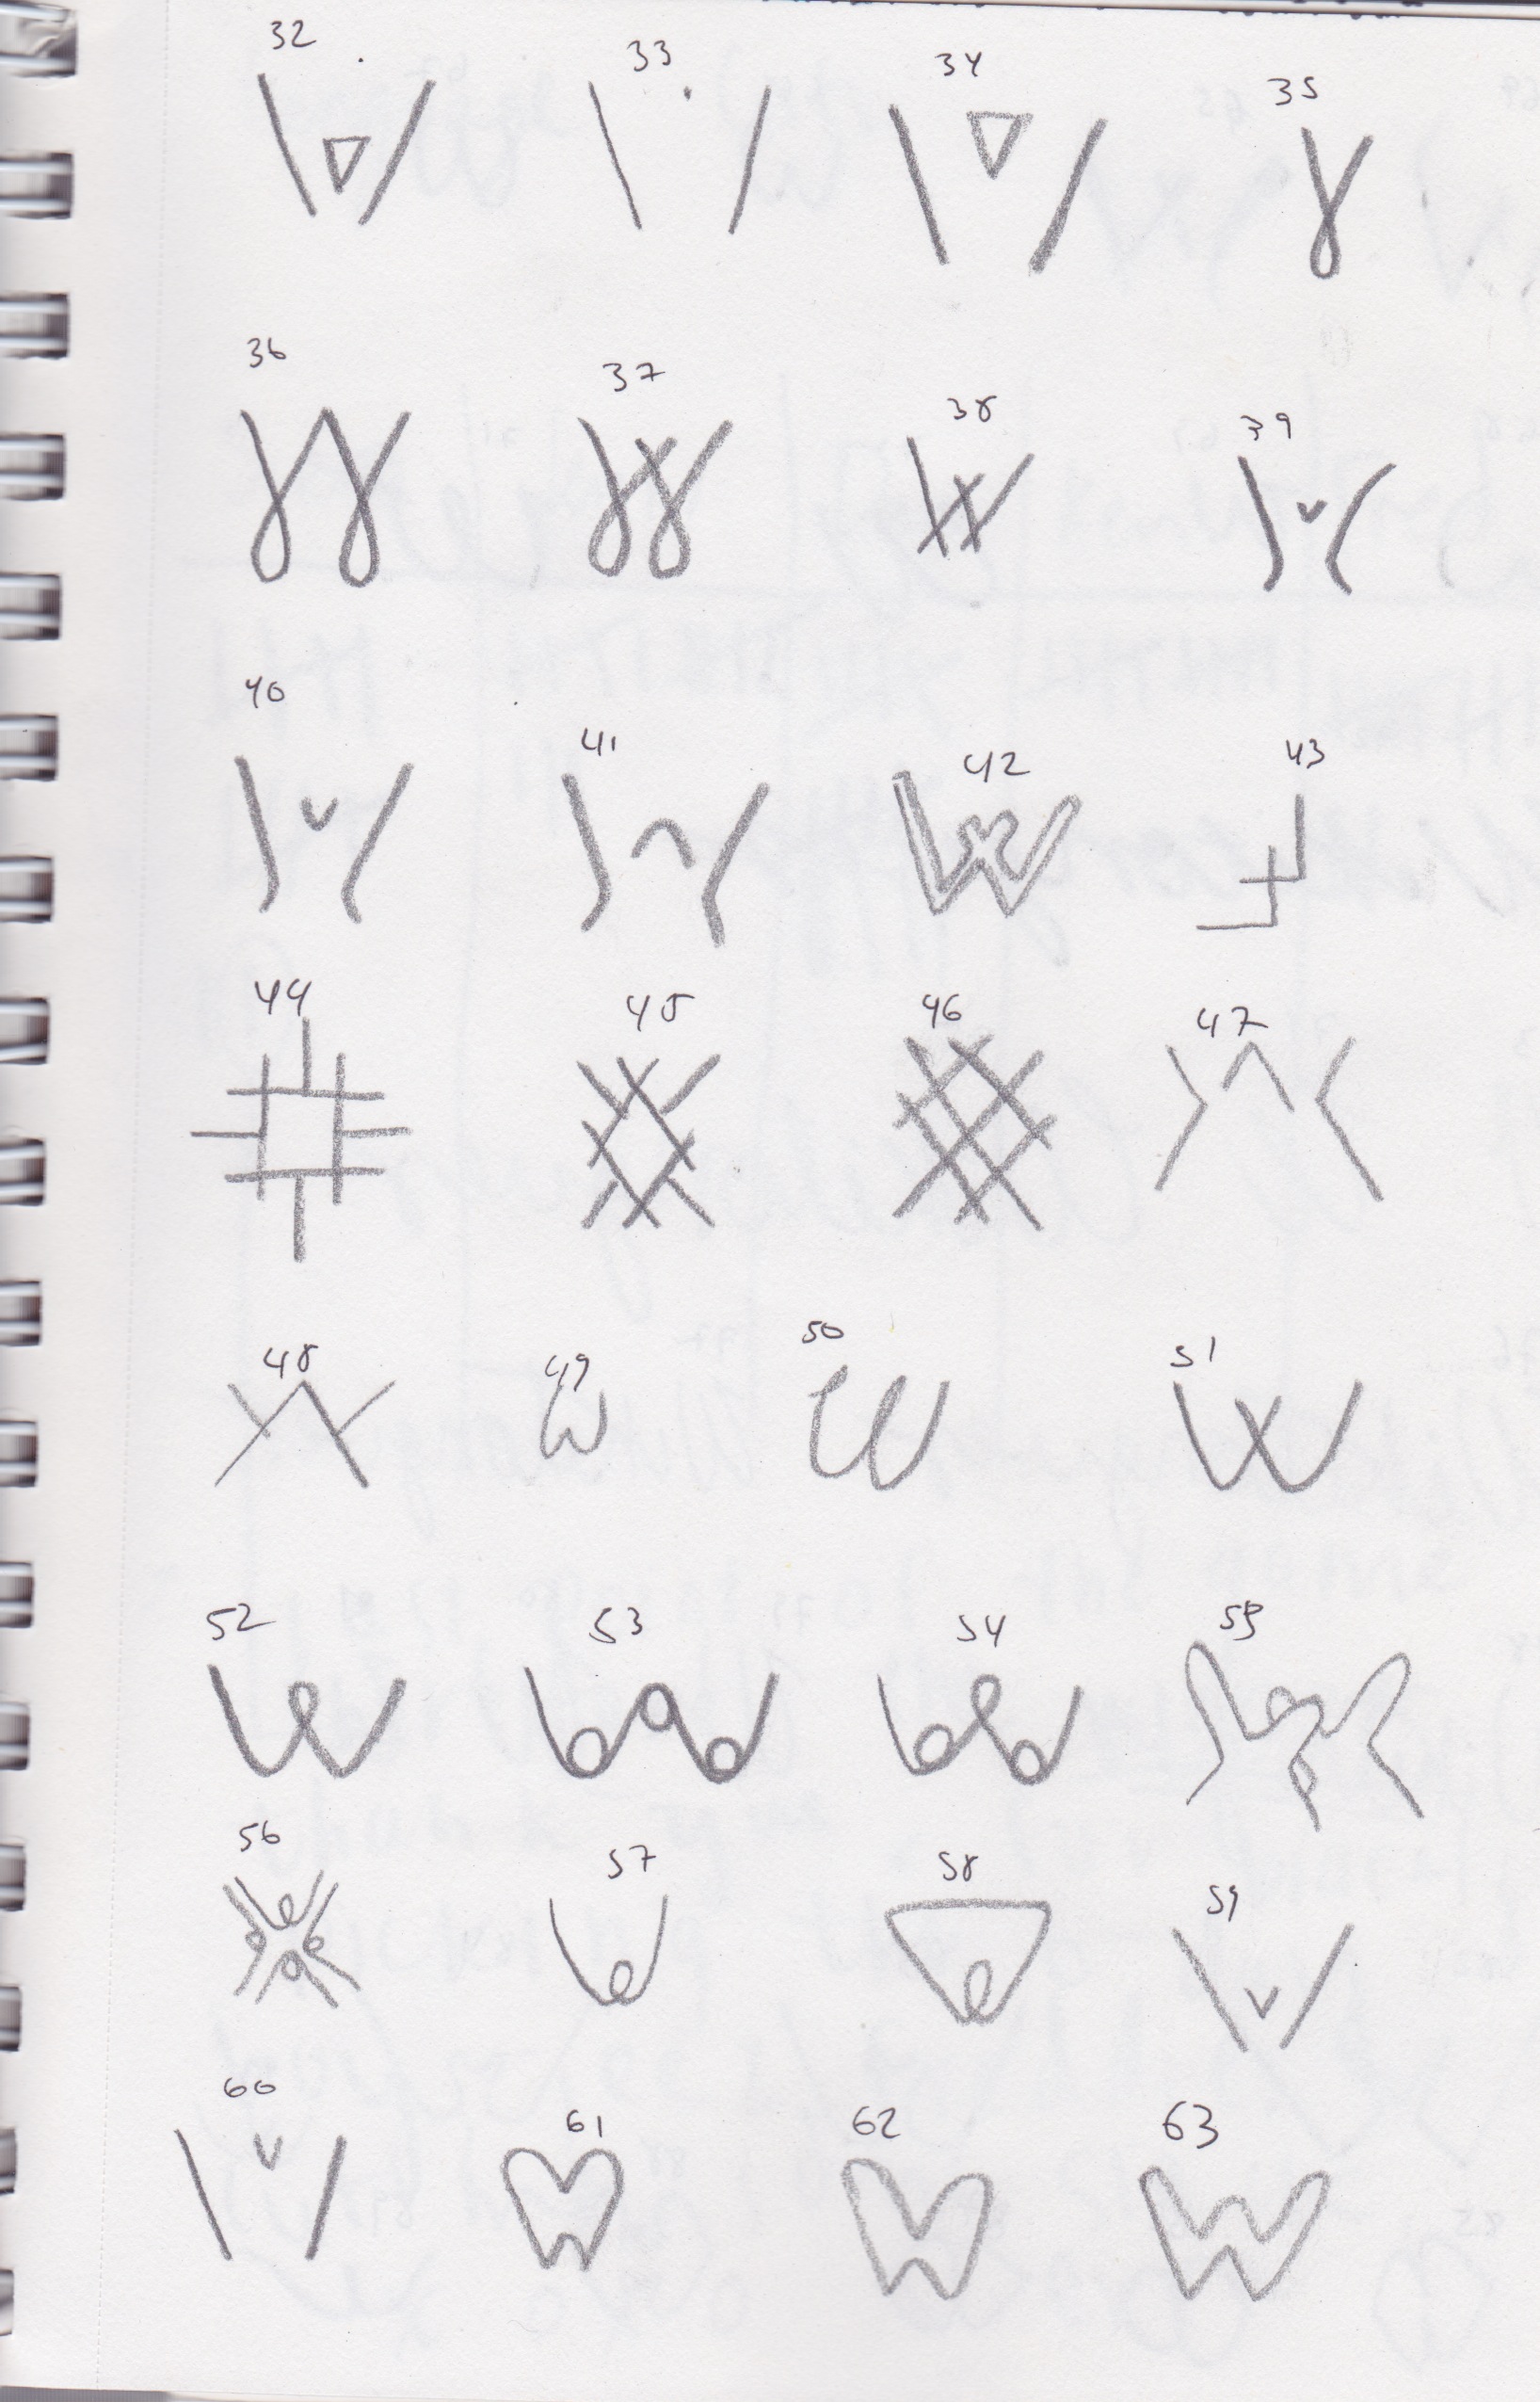 32 33 34 35
36 37 38 39
40 41 42 43
44 45 46 47
48 49 50 51
52 53 54 55
56 57 58 59
60 61 62 63